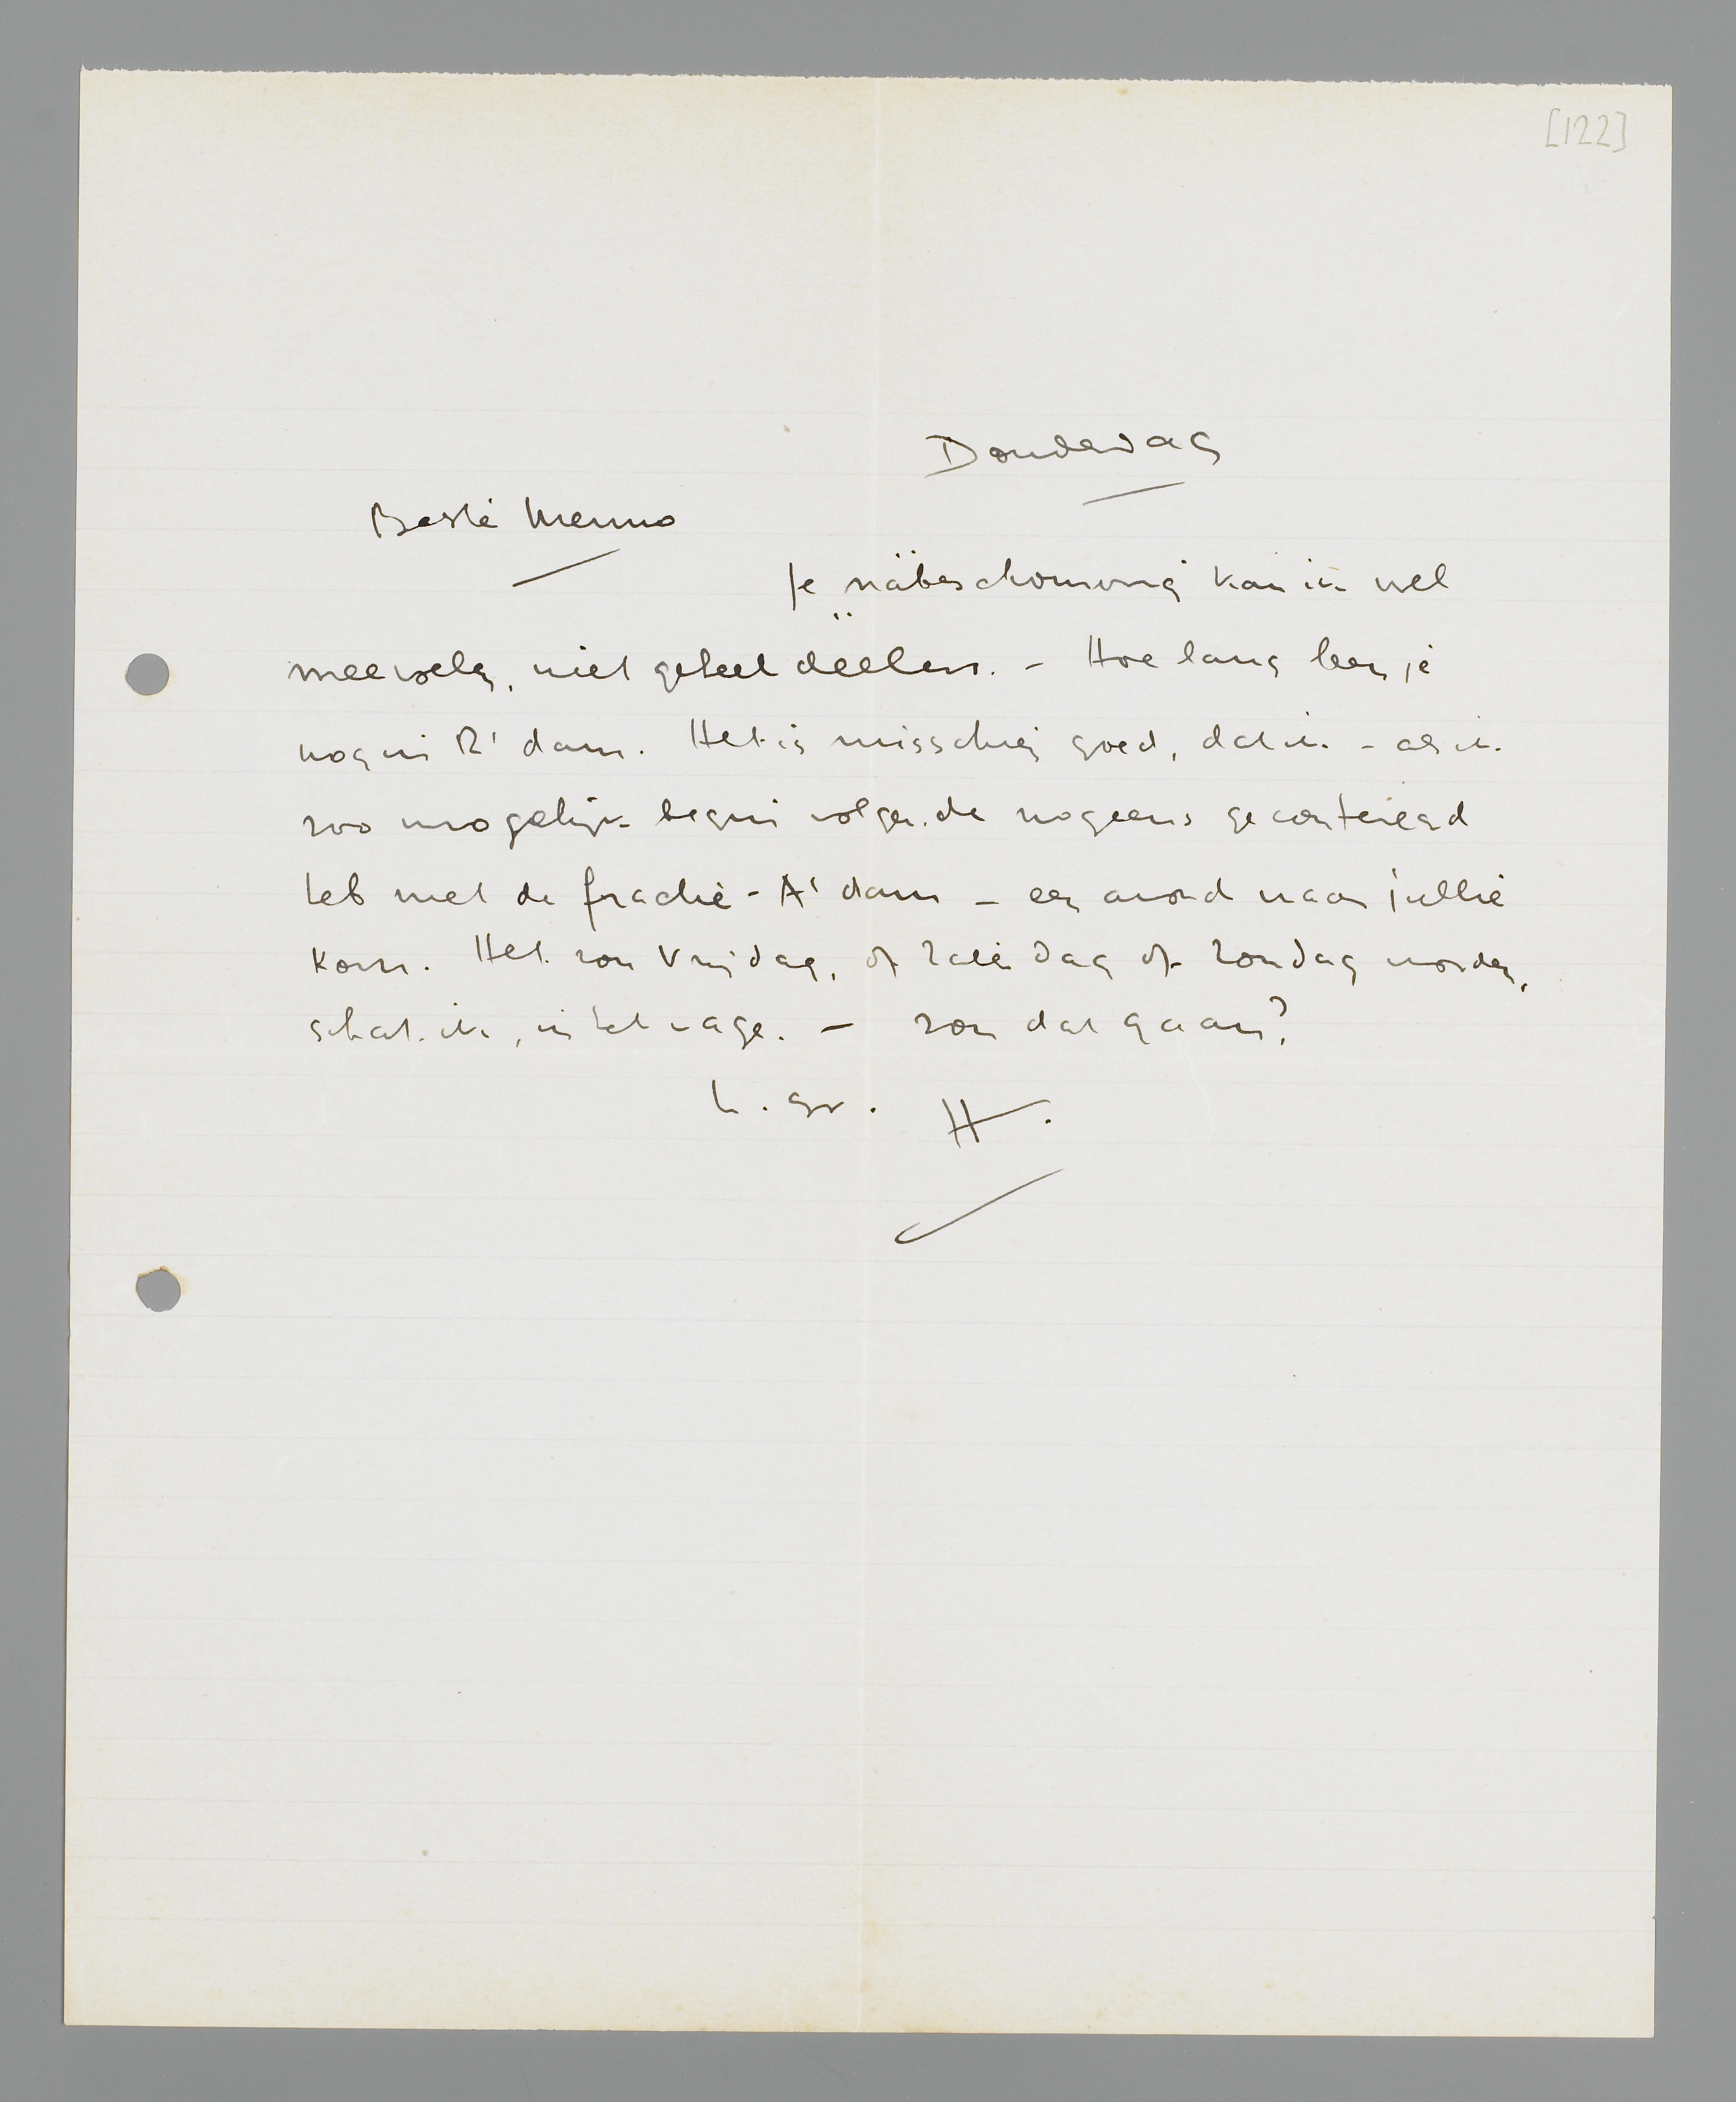 [122]
Donderdag
Beste Menno
Je nabeschouwing kan ik wel
meevoelen, niet geheel deelen. - Hoe lang ben je
nog in R'dam. Het is misschien goed, dat ik - als ik
zoo mogelijk begin volgende nog eens geconfereerd
heb met de fractie - A'dam - een avond naar jullie
kom. Het zou Vrijdag, of Zaterdag of Zondag worden,
schat ik, in het vage. - Zou dat gaan?
h. gr. H.